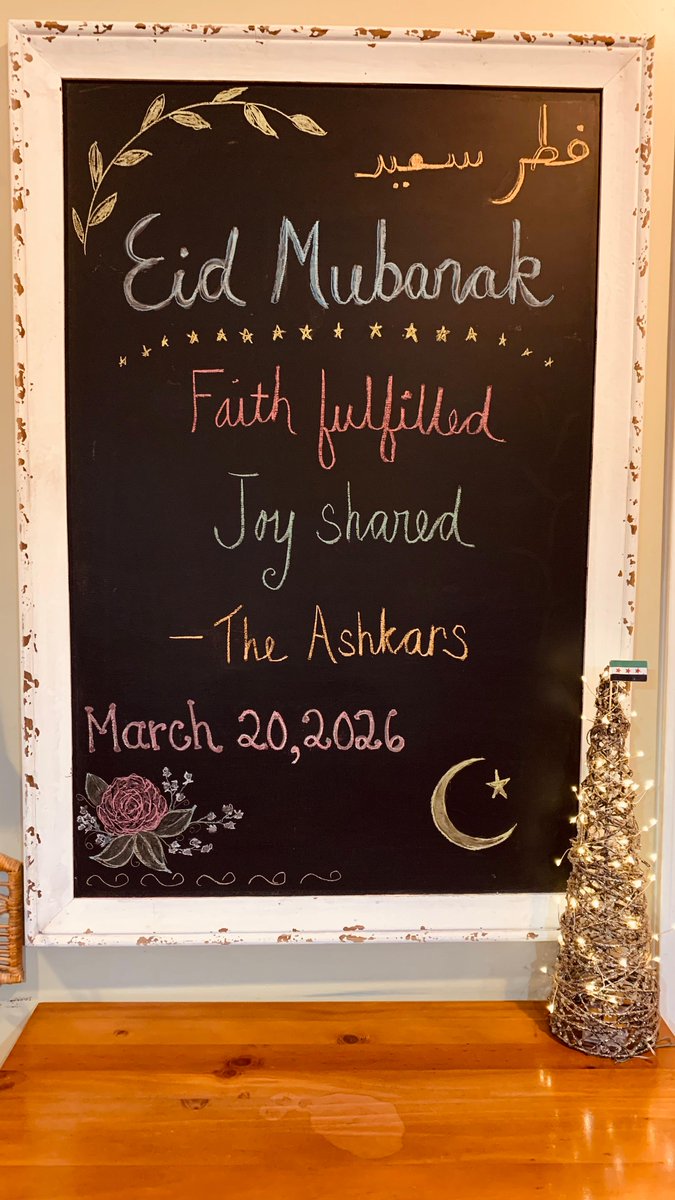 فطر سعيد
Eid Mubarak
Faith fulfilled
Joy shared
- The Ashkars
March 20, 2026